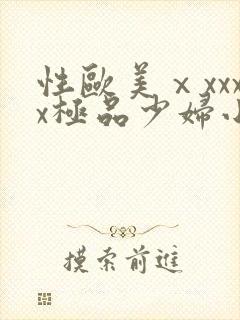 性歐美ⅹxxx
x極品少婦小
摸索前進